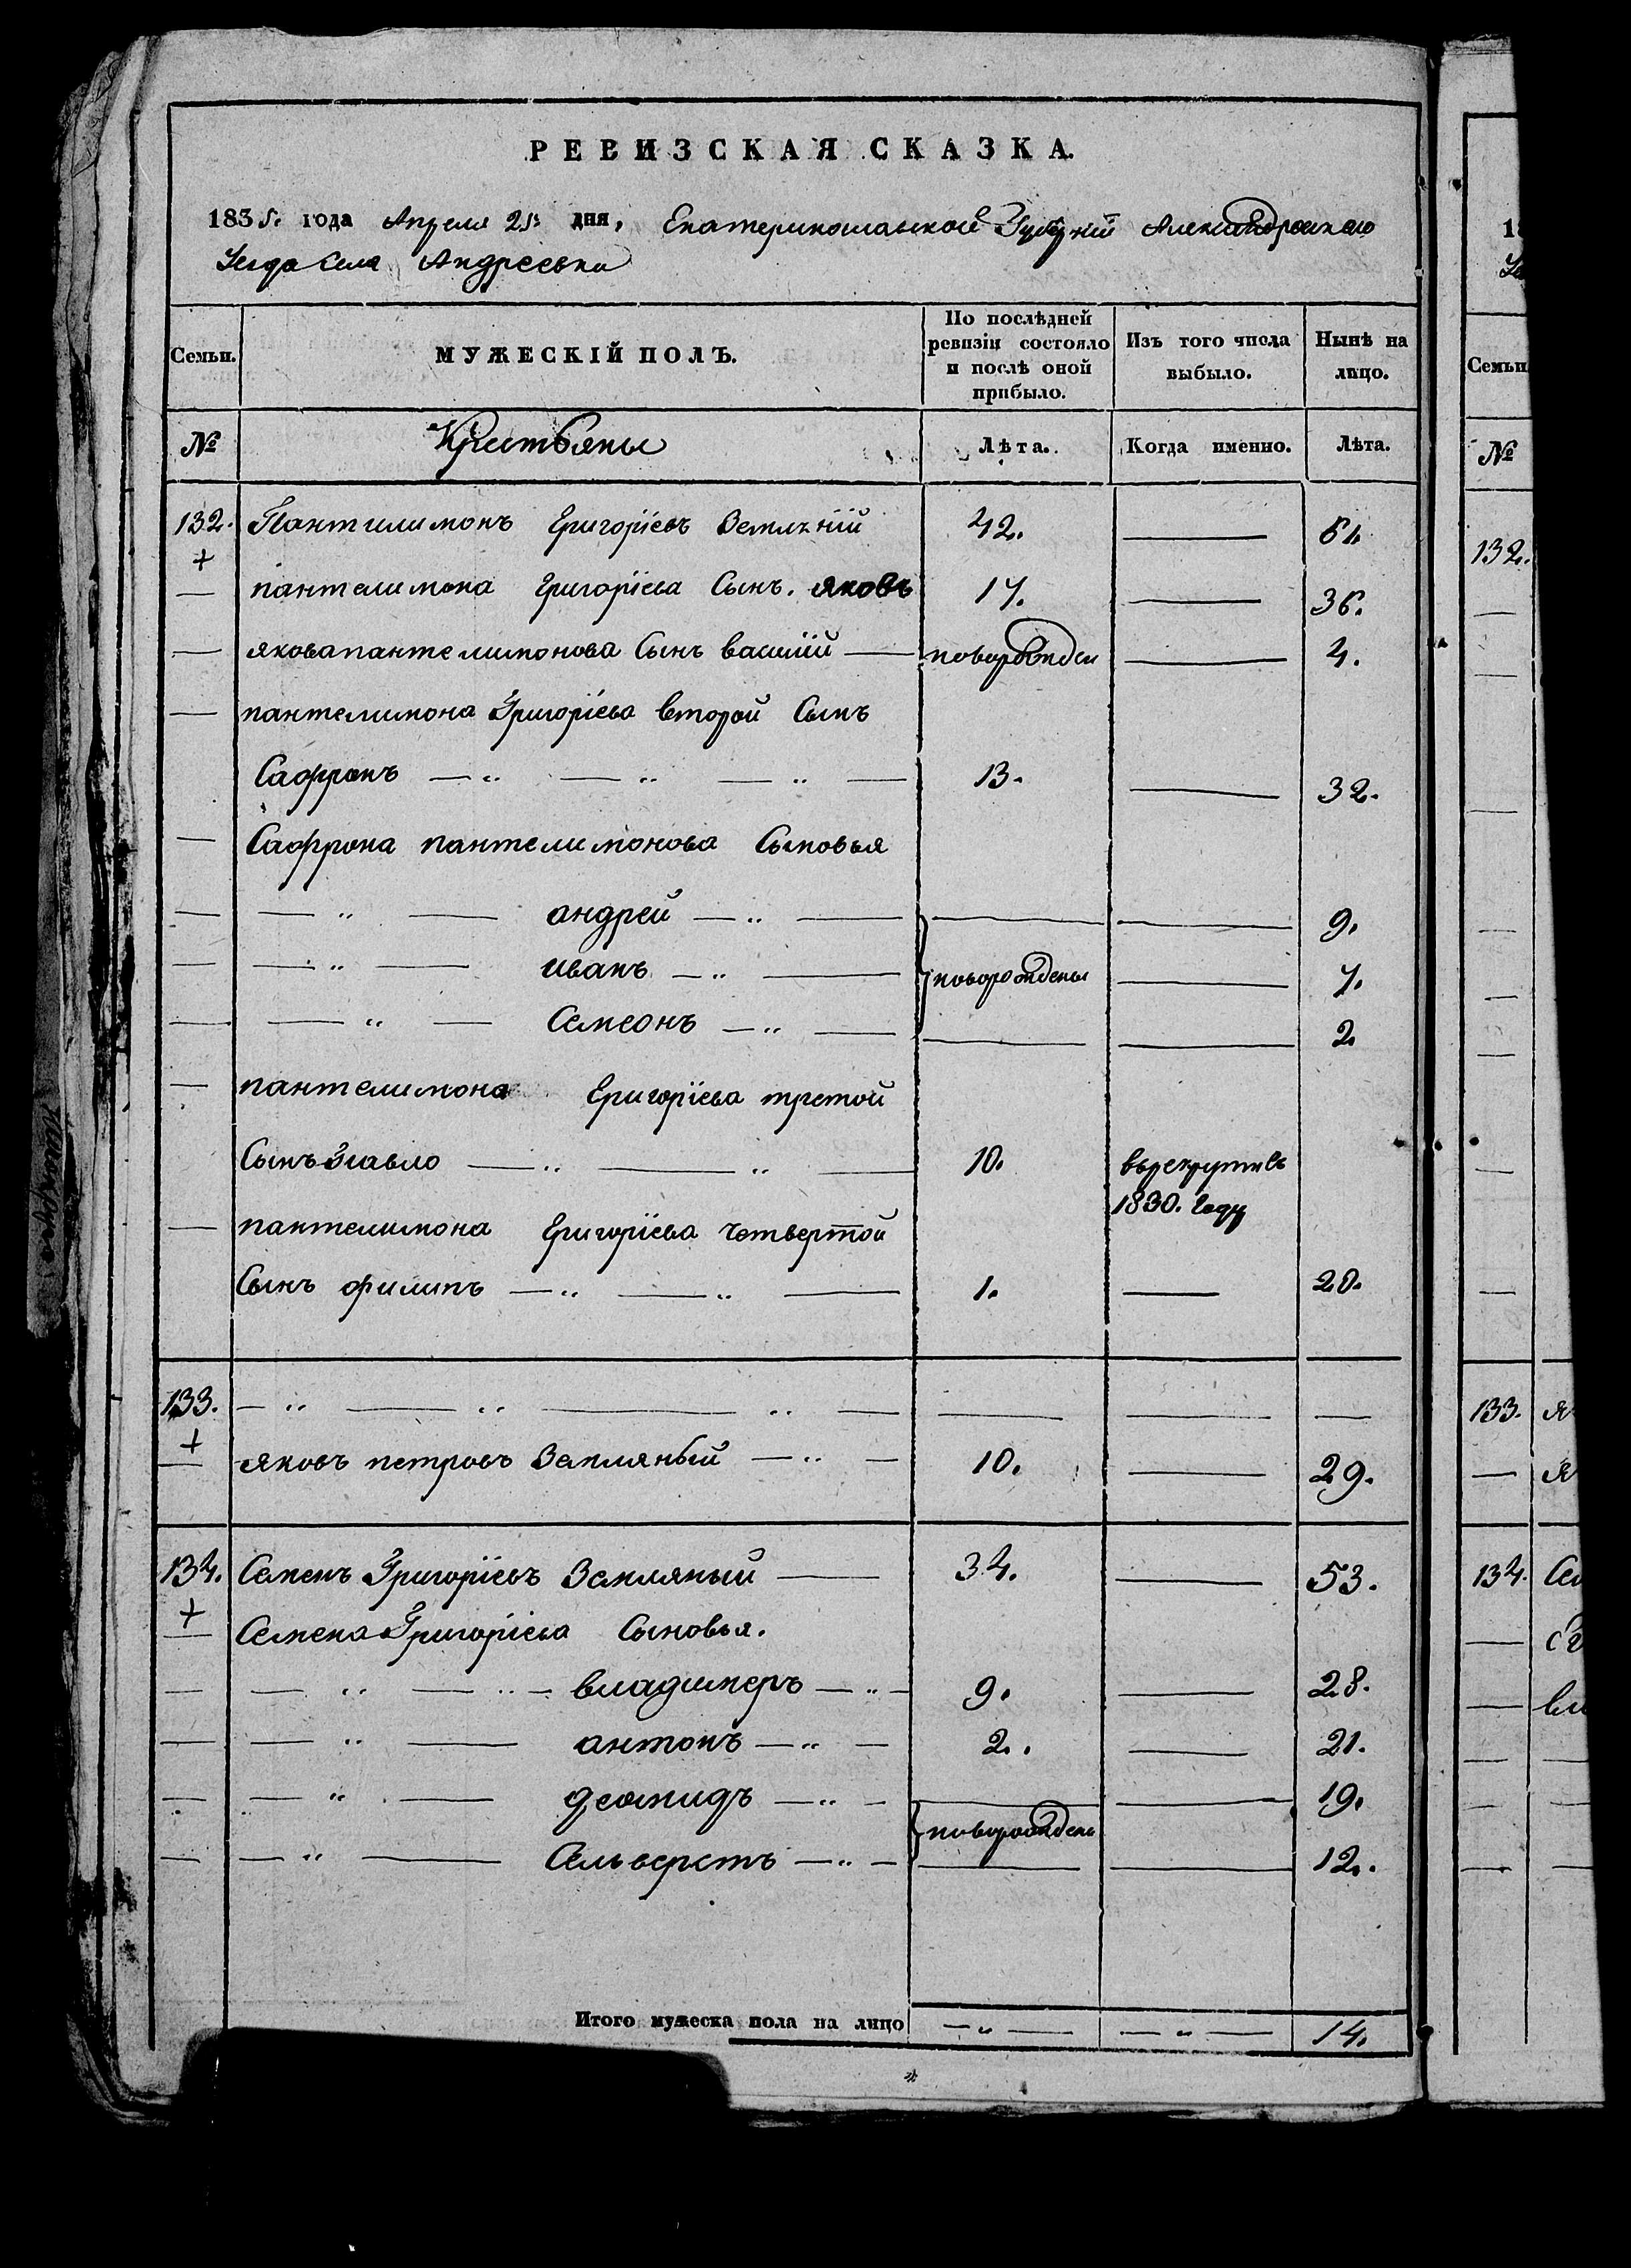 РЕВИЗСКАЯ СКАЗКА.
1835. года Апреля 25. дня, Екатеринославской Губерніи Александровскаго
Уезда Села Андреевки
Семьи. МУЖЕСКІЙ ПОЛЪ. По послѣдней ревизіи состояло и послѣ оной прибыло. Из того числа выбыло. Нынѣ на лицо.
№ Крестьяны Лѣта. Когда именно. Лѣта.
132. Пантилимонъ Григоріевъ Земляній 42. — 61.
+
— пантелимона Григоріева Сынъ. яковъ 17. — 36.
— якова пантелимонова Сынъ василій — новорожден — 4.
— пантелимона Григоріева второй Сынъ
Сафронъ — „ — „ — „ — 13. — 32.
— Сафрона пантелимонова Сыновья
— — „ — андрей — „ — — — 9.
— — „ — иванъ — „ — новорождены — 7.
— — „ — Семеонъ — „ — — — 2.
— пантелимона Григоріева третой
Сынъ Павло — „ — „ — 10. врекруты съ
1830. Году
— пантелимона Григоріева четвертой
Сынъ филипъ — „ — „ — 1. — 20.
133. — „ — „ — „ — — — —
+
— яковъ петровъ Земляный — „ — 10. — 29.
134. Семенъ Григоріевъ Земляный — 34. — 53.
+
— Семена Григоріева Сыновья.
— — „ — „ — владимеръ — „ — 9. — 28.
— — „ — антонъ — „ — 2. — 21.
— — „ — деомидъ — „ — — — 19.
новорожден
— — „ — Сельверстъ — „ — — — 12.
Итого мужеска пола на лицо — „ — — „ — 14.
Семьи
№
132.
133.
134.